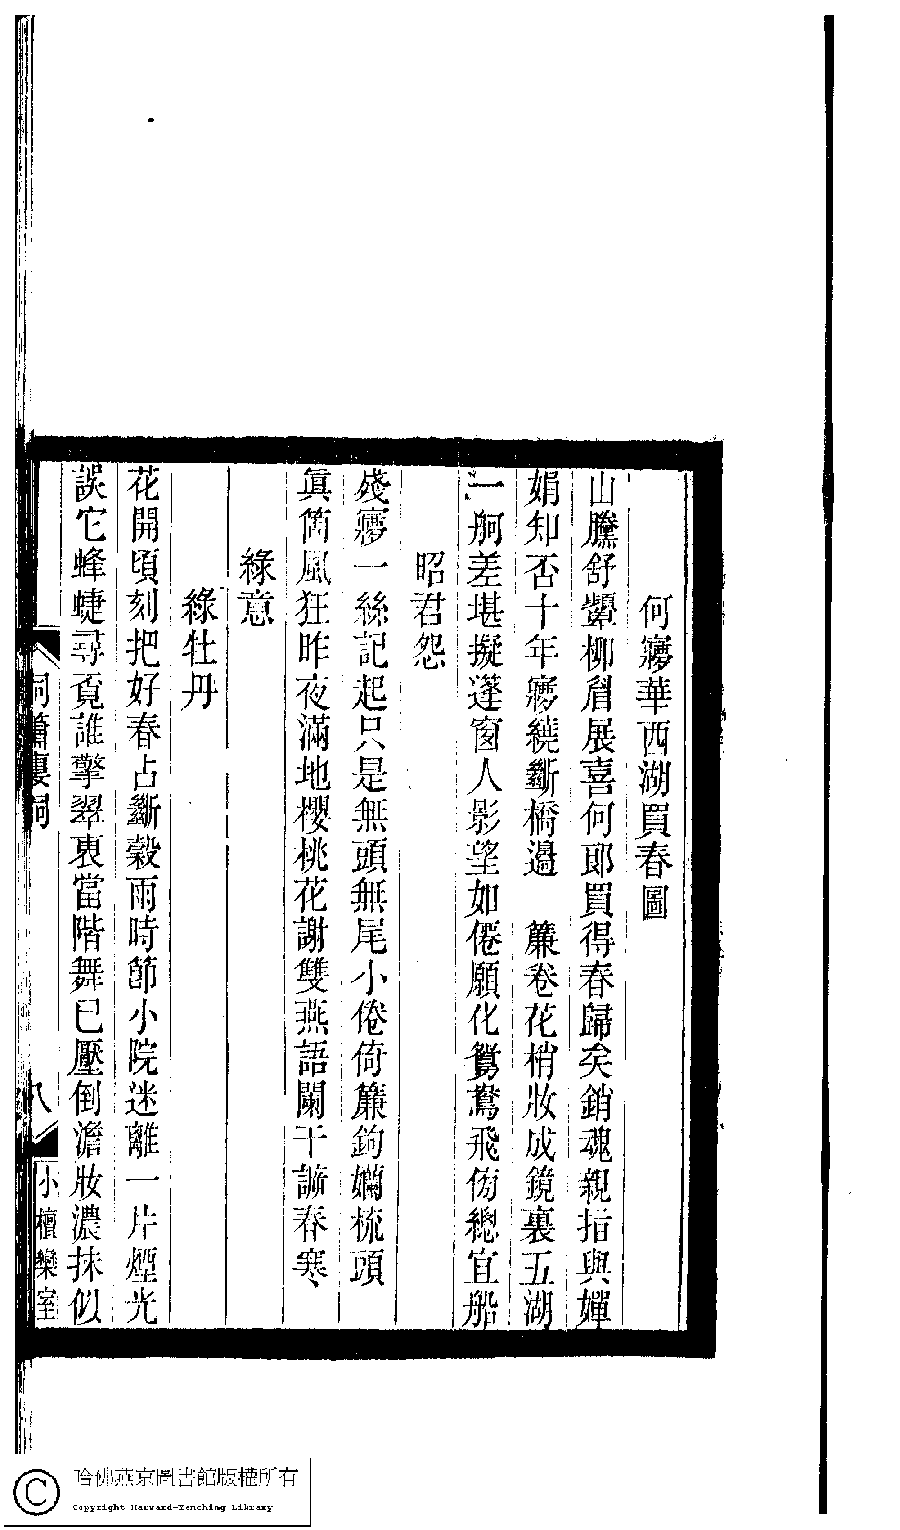 何㝱華西湖買春圖
山騰舒顰柳眉展喜何郎買得春歸矣銷魂親指與嬋
娟知否十年㝱繞斷橋邊　簾卷花梢妝成鏡裏五湖
一舸差堪擬蓬窗人影望如仙願化鴛鴦飛傍總宜船
昭君怨
殘㝱一絲記起只是無頭無尾小倦倚簾鉤嬾梳頭
眞箇風狂昨夜滿地櫻桃花謝雙燕語闌干諦春寒
綠意
綠牡丹
花開頃刻把好春占斷穀雨時節小院迷離一片煙光
誤它蜂蜨尋覓誰擎翠袠當階舞已壓倒澹妝濃抹似
洞簫廔詞
八
小檀欒室
哈佛燕京圖書館版權所有
Copyright Harvard-Yenching Library